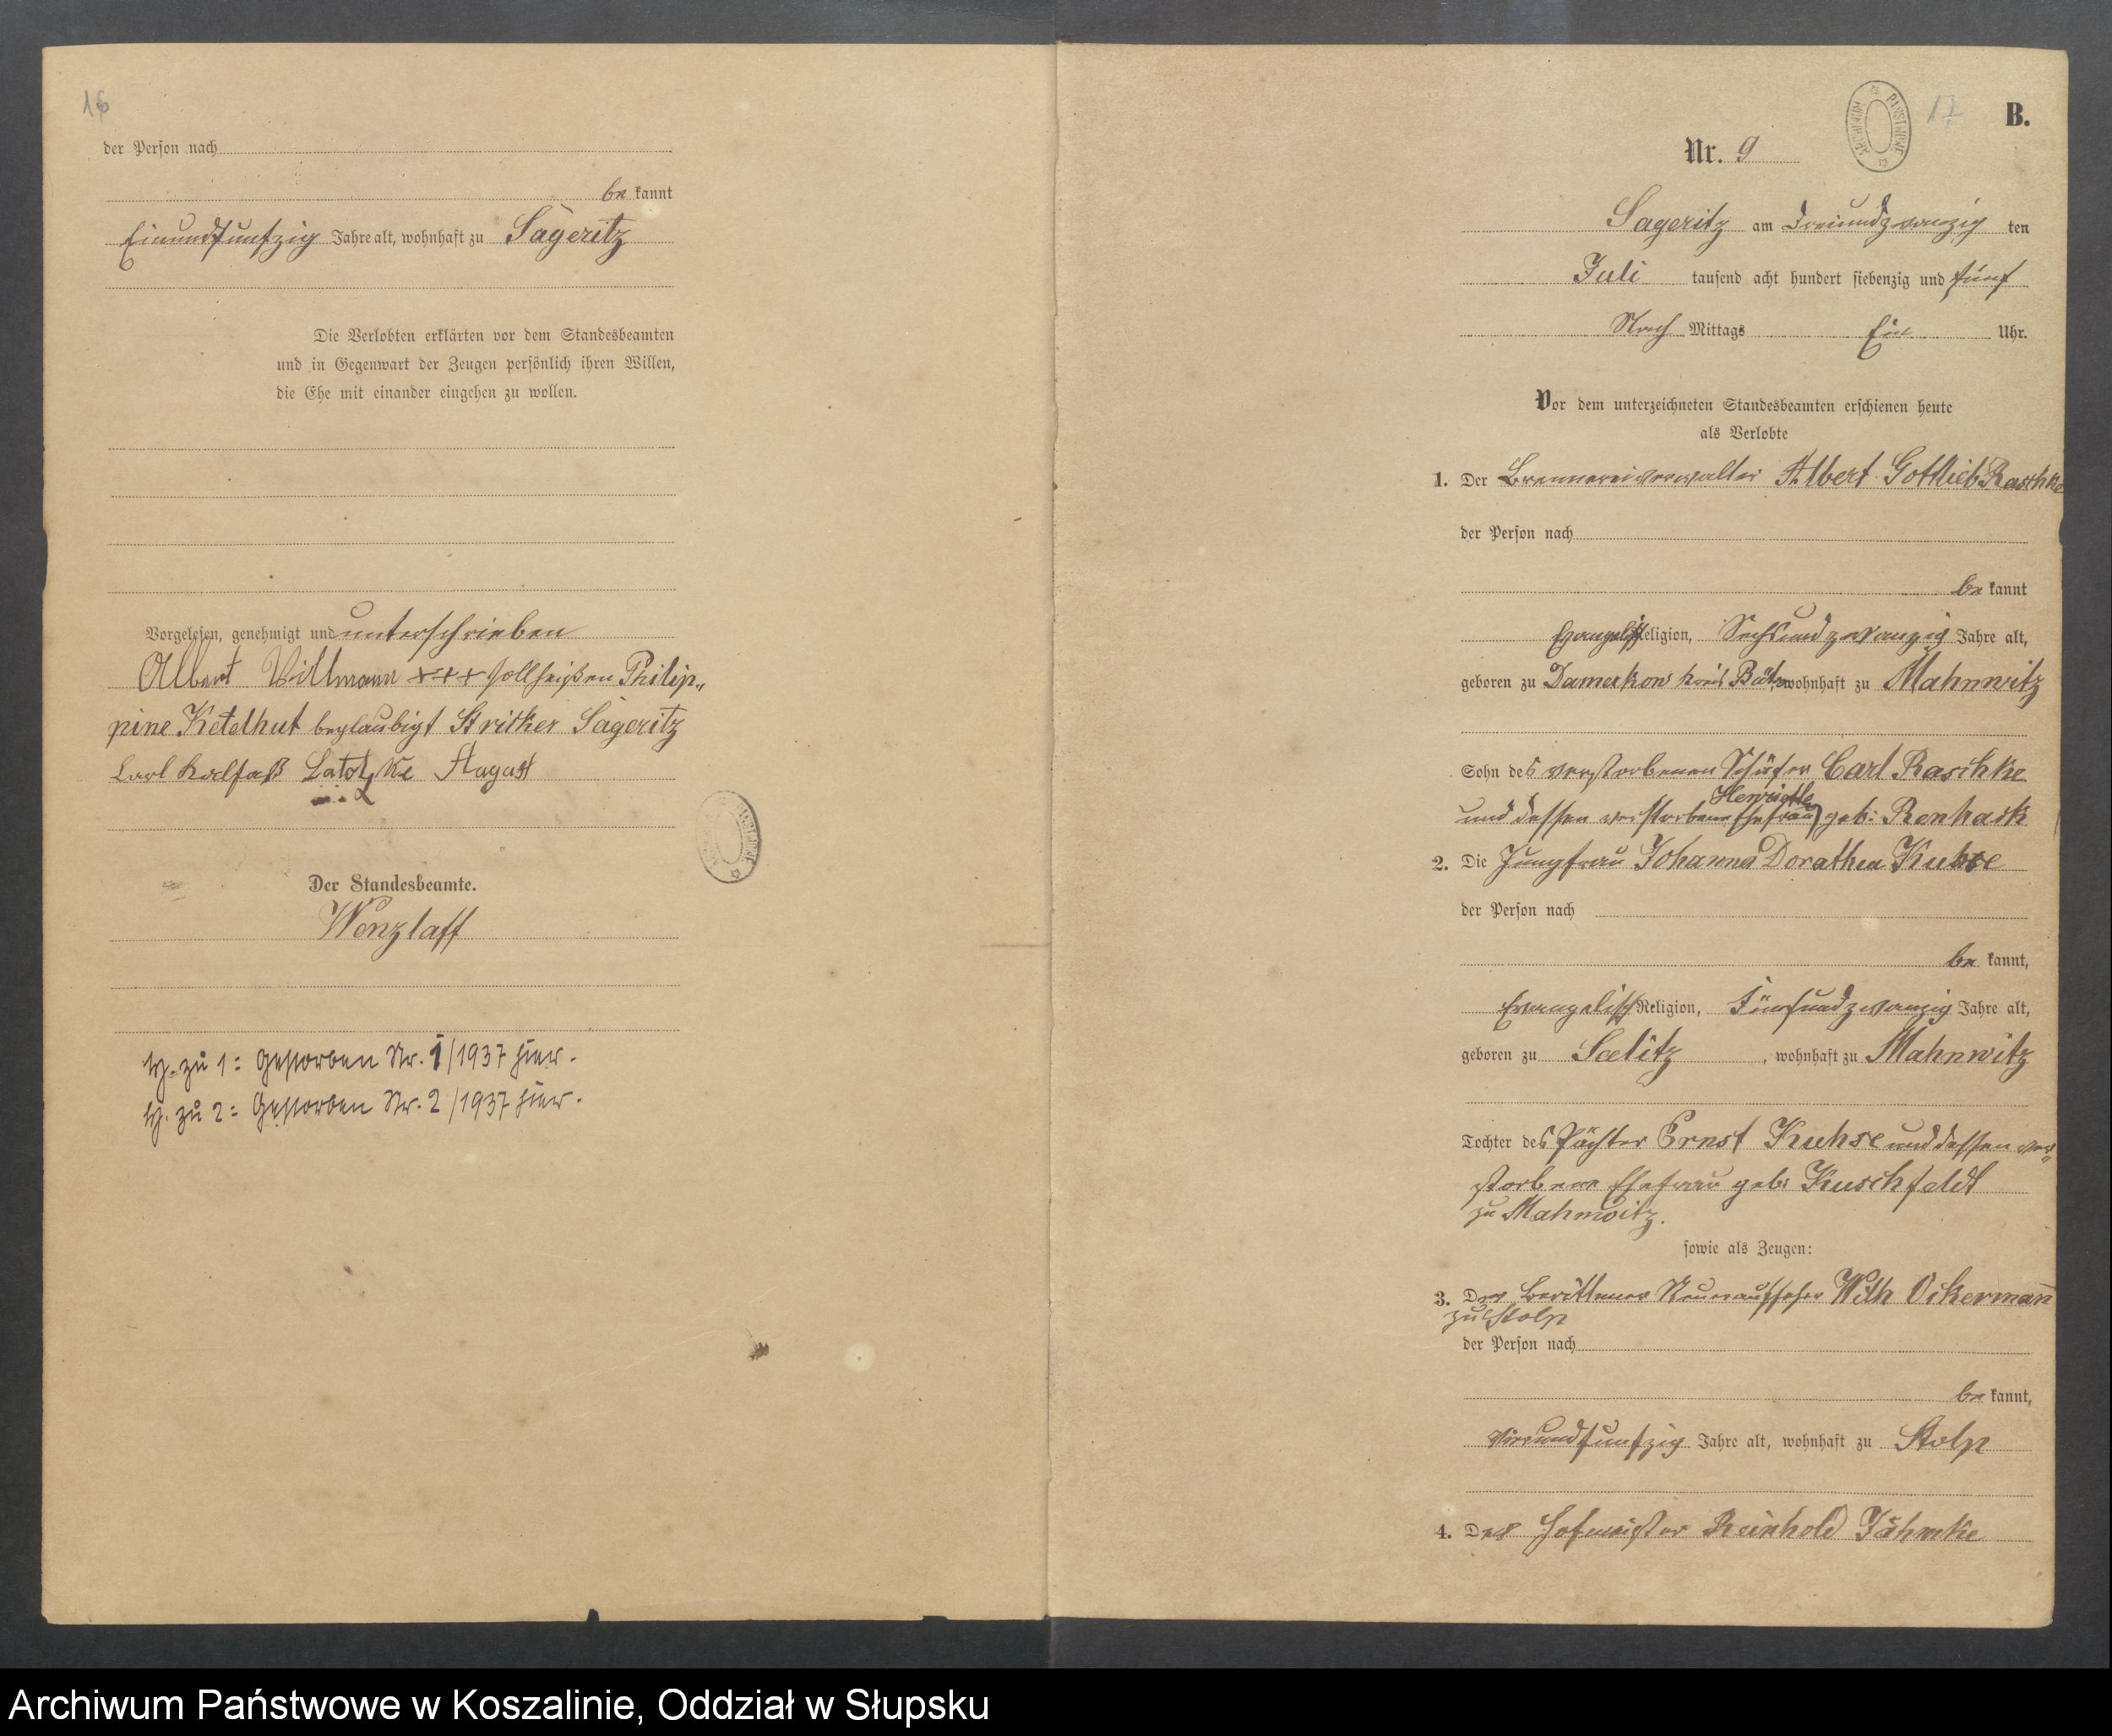 16
der Person nach
be kannt
Einundfunfzig Jahre alt, wohnhaft zu Sageritz
Die Verlobten erklärten vor dem Standesbeamten
und in Gegenwart der Zeugen persönlich ihren Willen,
die Ehe mit einander eingehen zu wollen.
Vorgelesen, genehmigt und unterschrieben
Albert Villmann +++ soll heißen Philip„
pine Ketelhut beglaubigt Stricker Sageritz
Carl August
Der Standesbeamte.
Wenzlaff
H. zu 1: Gestorben Nr. 1/1937 hier.
H. zu 2: Gestorben Nr. 2/1937 hier.
17
B.
ARCHIWUM PAŃSTWOWE
Nr. 9
Sageritz am Dreiundzwanzig ten
Juli tausend acht hundert siebenzig und fünf
Nach Mittags Ein Uhr.
Vor dem unterzeichneten Standesbeamten erschienen heute
als Verlobte
1. Der Brennereiverwalter Albert Gottlieb Raschke
der Person nach
be kannt
Evangelisch Religion, Sechsundzwanzig Jahre alt,
geboren zu Damerkow Kreis Bütow wohnhaft zu Mahnwitz
Sohn des verstorbenen Schäfer Carl Raschke
und dessen verstorbene Ehefrau Henriette geb: Renhack
2. Die Jungfrau Johanna Dorathea Kuhse
der Person nach
be kannt,
Evangelisch Religion, Fünfundzwanzig Jahre alt,
geboren zu Saelitz, wohnhaft zu Mahnwitz
Tochter des Pächter Ernst Kuhse und dessen ver„
storbene Ehefrau geb: Kuschfeldt
zu Mahnwitz.
sowie als Zeugen:
3. Der Berittener Steueraufseher Wilh Ockermann
zu Stolp
der Person nach
be kannt,
Vierundfunfzig Jahre alt, wohnhaft zu Stolp
4. Der Hofmeister Reinhold Jähnke
Archiwum Państwowe w Koszalinie, Oddział w Słupsku